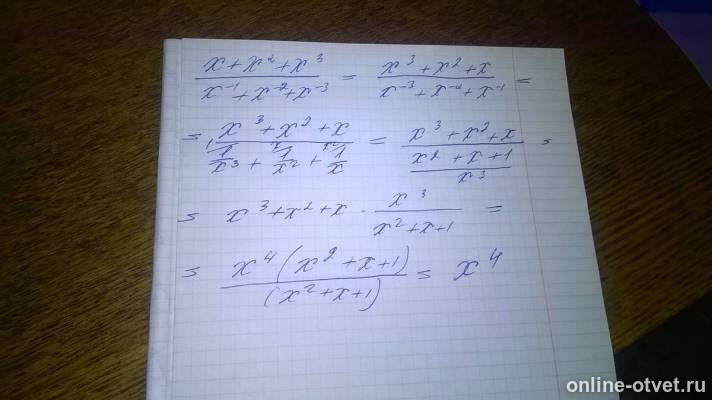 (x + x² + x³)/(x⁻¹ + x⁻² + x⁻³) = (x³ + x² + x)/(x⁻³ + x⁻² + x⁻¹) =
= (x³ + x² + x)/(1/x³ + 1/x² + 1/x) = (x³ + x² + x)/((x² + x + 1)/x³) =
= x³ + x² + x · x³/(x² + x + 1) =
= x⁴(x² + x + 1)/(x² + x + 1) = x⁴
online-otvet.ru